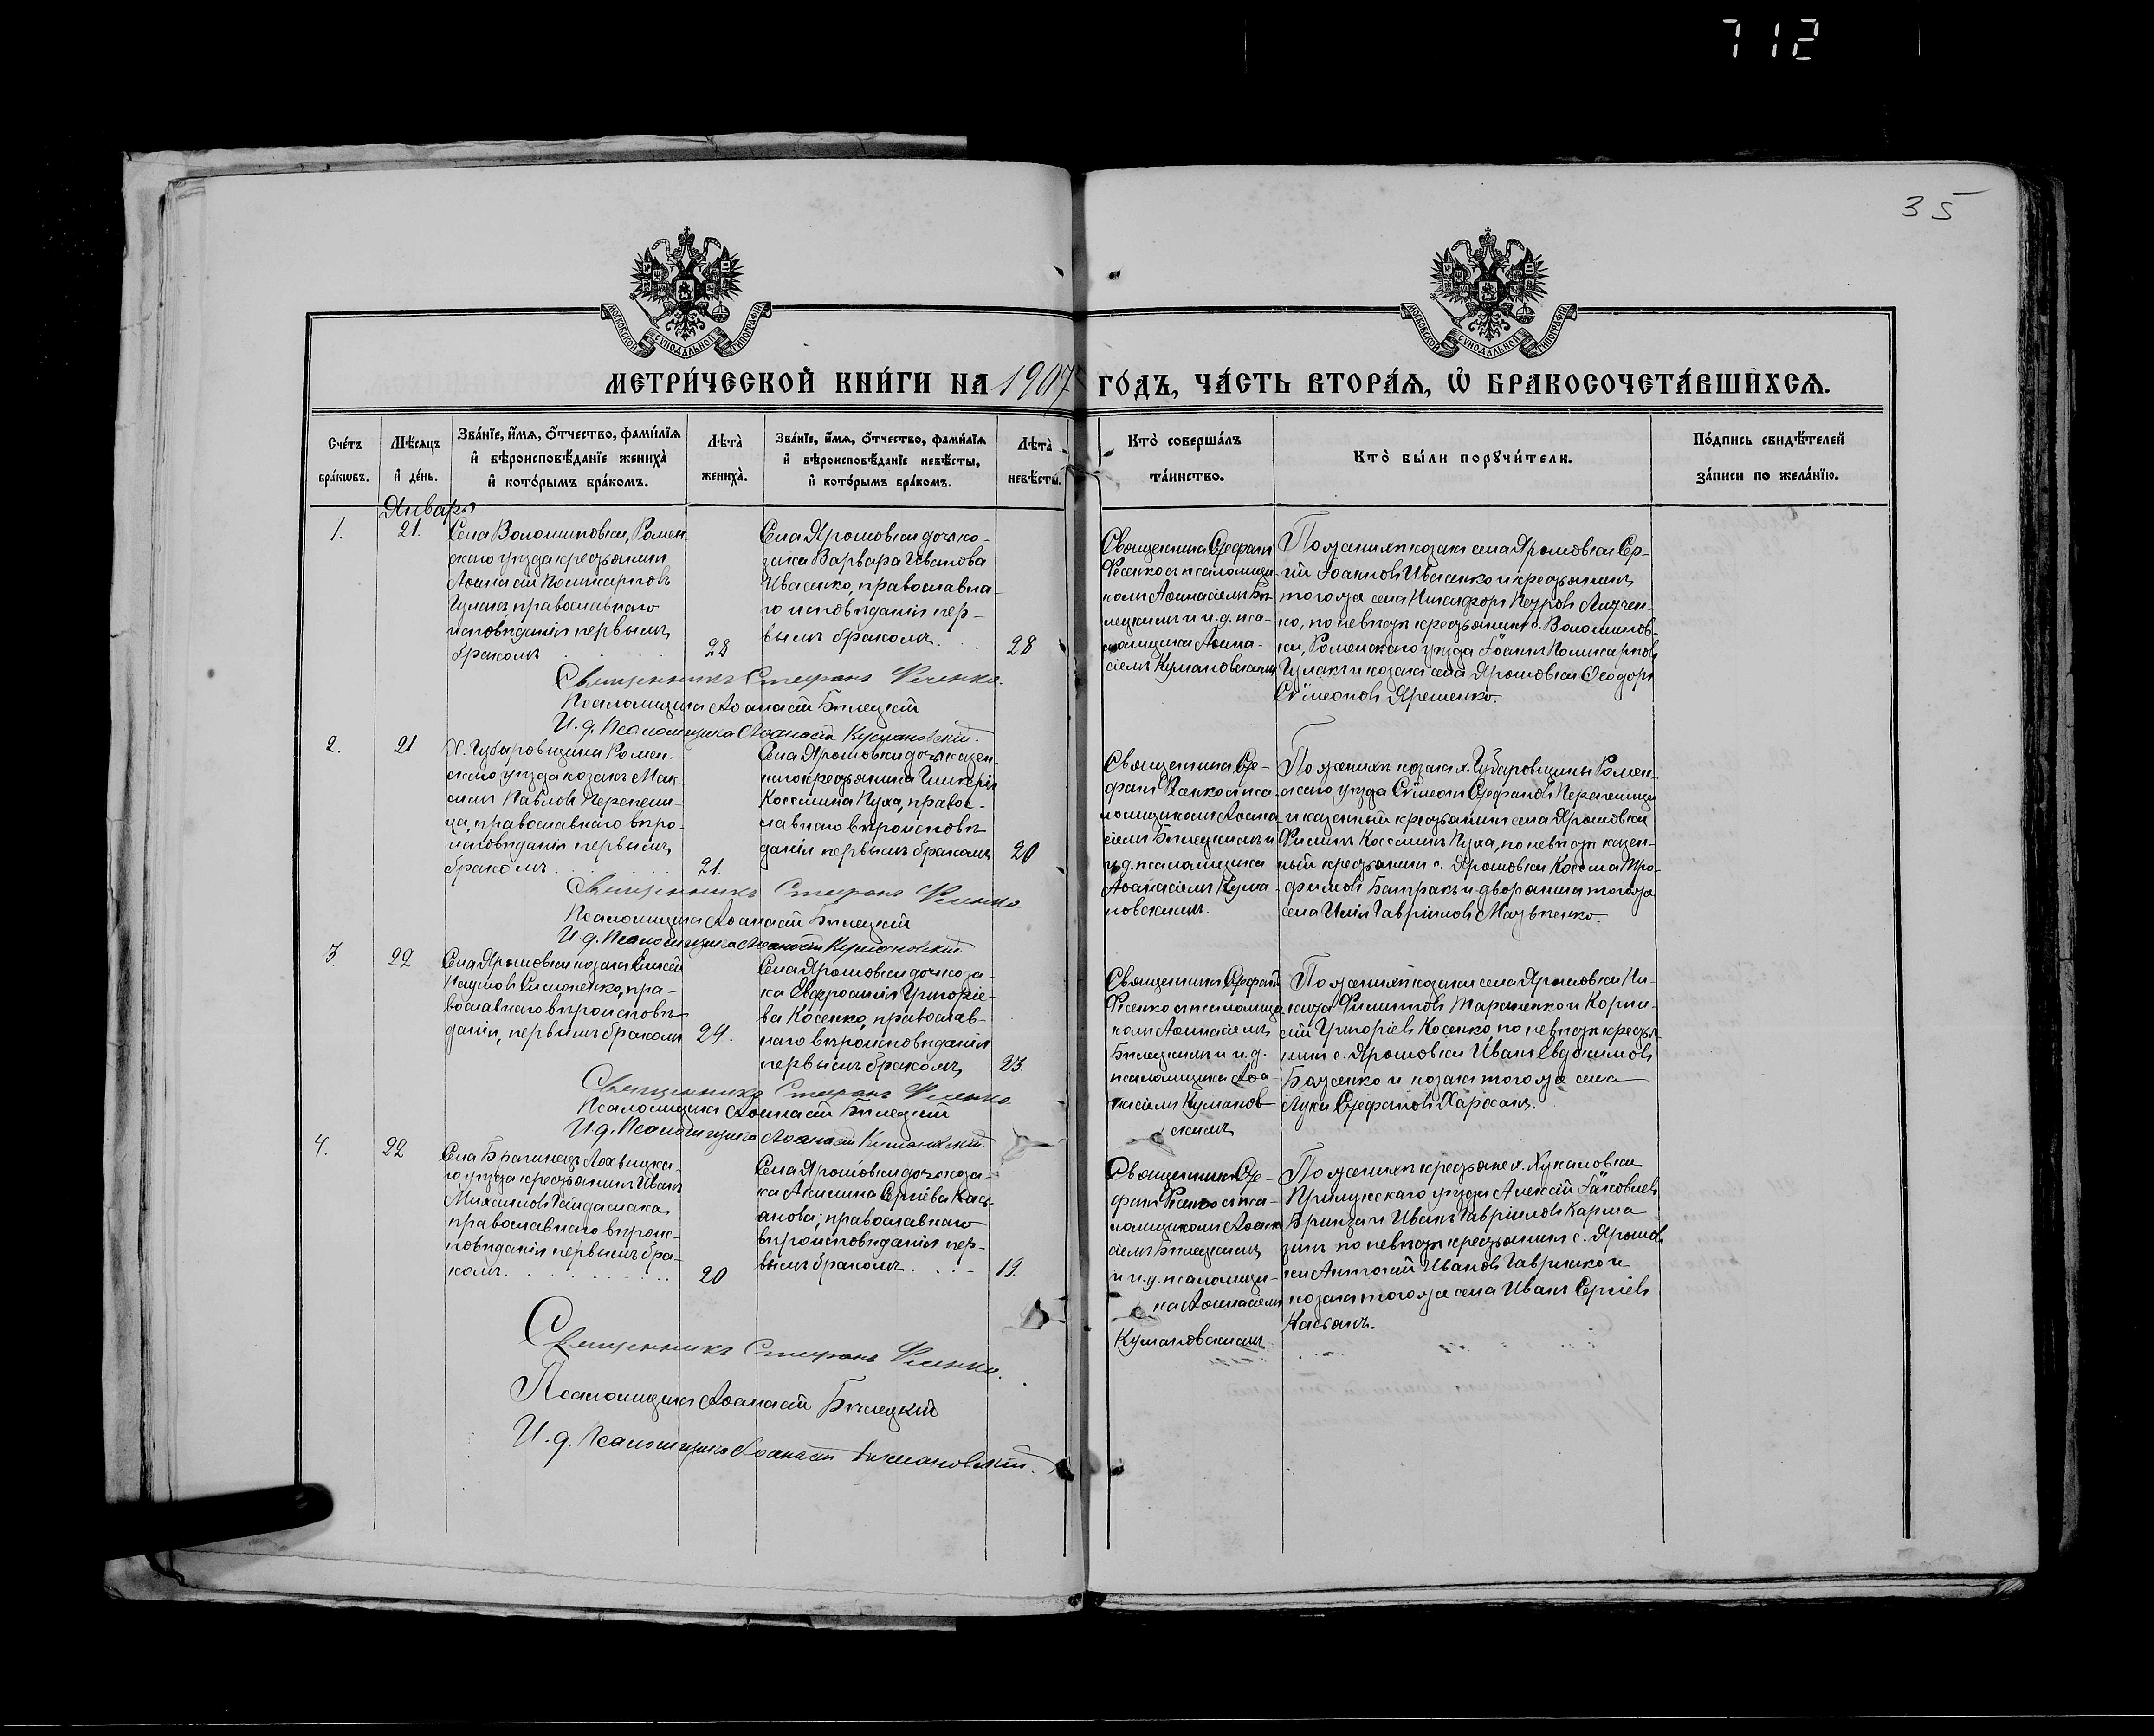 712
35
МОСКОВСКОЙ СѴНОДАЛЬНОЙ ТИПОГРАФІИ
МОСКОВСКОЙ СѴНОДАЛЬНОЙ ТИПОГРАФІИ
МЕТРИ́ЧЕСКОЙ КНИ́ГИ НА 1907 ГО́ДЪ, ЧА́СТЬ ВТОРА́Ѧ, Ѡ БРАКОСОЧЕТА́ВШИХСѦ.
Сче́тъ
бра́кѡвъ.
Мѣ́сѧцъ
и де́нь.
Зва́нїе, и́мѧ, о́тчество, фами́лїѧ
и вѣроисповѣ́данїе жениха̀
и кото́рымъ бра́комъ.
Лѣта̀
жениха̀.
Зва́нїе, и́мѧ, о́тчество, фами́лїѧ
и вѣроисповѣ́данїе невѣ́сты,
и кото́рымъ бра́комъ.
Лѣта̀
невѣ́сты.
Кто̀ соверша́лъ
та́инство.
Кто̀ бы́ли порꙋчи́тели.
По́дпись свидѣ́телей
за́писи по жела́нїю.
Январь
1.
21.
Села Волошиновки, Ромен
скаго уѣзда крестьянинъ
Аѳанасій Поликарповъ
Гулакъ православнаго
исповѣданія первымъ
бракомъ
28
Села Ярошовки дочь ко-
зака Варвара Иванова
Ивасенко, православна-
го исповѣданія пер-
вымъ бракомъ
28
Священникъ Стефанъ
Фесенко съ псаломщи-
комъ Аѳанасіемъ Бѣ-
лецкимъ и и.д. пса-
ломщика Аѳана-
сіемъ Кумановскимъ
По женихѣ козакъ села Ярошовки Сер-
гій Іоанновъ Ивасенко и крестьянинъ
того же села Никифоръ Петровъ
ко, по невѣстѣ крестьянинъ с. Волошинов-
ки, Роменскаго уѣзда Іоаннъ Поликарповъ
Гулакъ и козакъ села Ярошовки Ѳеодоръ
Сѵмеоновъ Яременко.
Священникъ Стефанъ Фесенко.
Псаломщикъ Аѳанасій Бѣлецкій
И. д. Псаломщика Аѳанасій Кумановскій.
2.
21
Х. Губаровщины Ромен-
скаго уѣзда козакъ Мак-
симъ Павловъ Перепели-
ца, православнаго вѣро-
исповѣданія первымъ
бракомъ
21.
Села Ярошовки дочь казен-
наго крестьянина Гликерія
Космина Пуха, правос-
лавнаго вѣроисповѣ
данія первымъ бракомъ
20
Священникъ Сте-
фанъ Фесенко съ пса-
ломщикомъ Аѳана-
сіемъ Бѣлецкимъ и
и.д. псаломщика
Аѳанасіемъ Кума-
новскимъ.
По женихѣ козакъ х. Губаровщины Ромен-
скаго уѣзда Сѵмеонъ Стефановъ Перепелица
и казенный крестьянинъ села Ярошовки
Филиппъ Косминъ Пуха, по невѣстѣ казен-
ный крестьянинъ с. Ярошовки Косьма Тро-
фимовъ Батракъ и дворянинъ того же
села Илія Гавріиловъ Матвѣенко.
Священникъ Стефанъ Фесенко.
Псаломщикъ Аѳанасій Бѣлецкій
И. д. Псаломщика Аѳанасій Кумановскій
3.
22
Села Ярошовки козакъ Елисей
Наумовъ Симоненко, пра-
вославнаго вѣроисповѣ
данія, первымъ бракомъ
24.
Села Ярошовки дочь коза-
ка Евфросинія Григоріе-
ва Косенко, православ-
наго вѣроисповѣданія
первымъ бракомъ
23.
Священникъ Стефанъ
Фесенко съ псаломщи-
комъ Аѳанасіемъ
Бѣлецкимъ и и.д.
псаломщика Аѳа-
насіемъ Куманов-
скимъ
По женихѣ козаки села Ярошовки Ни-
кита Филипповъ Тараненко и Корни-
лій Григоріевъ Косенко по невѣстѣ крестья
нинъ с. Ярошовки Иванъ Евдокимовъ
Баженко и козакъ того же села
Лука Стефановъ
Священникъ Стефанъ Фесенко.
Псаломщикъ Аѳанасій Бѣлецкій
И. д. Псаломщика Аѳанасій Кумановскій
4.
22
Села Брагинецъ Лохвицка-
го уѣзда крестьянинъ Иванъ
Михаиловъ Гайдамака
православнаго вѣроис-
повѣданія первымъ бра-
комъ.
20
Села Ярошовки дочь коза-
ка Акилина Сергіева Кась-
янова, православнаго
вѣроисповѣданія пер-
вымъ бракомъ
19.
Священникъ Сте-
фанъ Фесенко съ пса-
ломщикомъ Аѳана-
сіемъ Бѣлецкимъ
и и.д. псаломщи-
ка Аѳанасіемъ
Кумановскимъ
По женихѣ крестьяне х. Жукановки
Прилукскаго уѣзда Алексій Іаковлевъ
Бринза и Иванъ Гавріиловъ Карма
зинъ по невѣстѣ крестьянинъ с. Ярошов
ки Антоній Ивановъ Гавришко и
козакъ того же села Иванъ Сергіевъ
Касьянъ.
Священникъ Стефанъ Фесенко.
Псаломщикъ Аѳанасій Бѣлецкій
И. д. Псаломщика Аѳанасій Кумановскій.